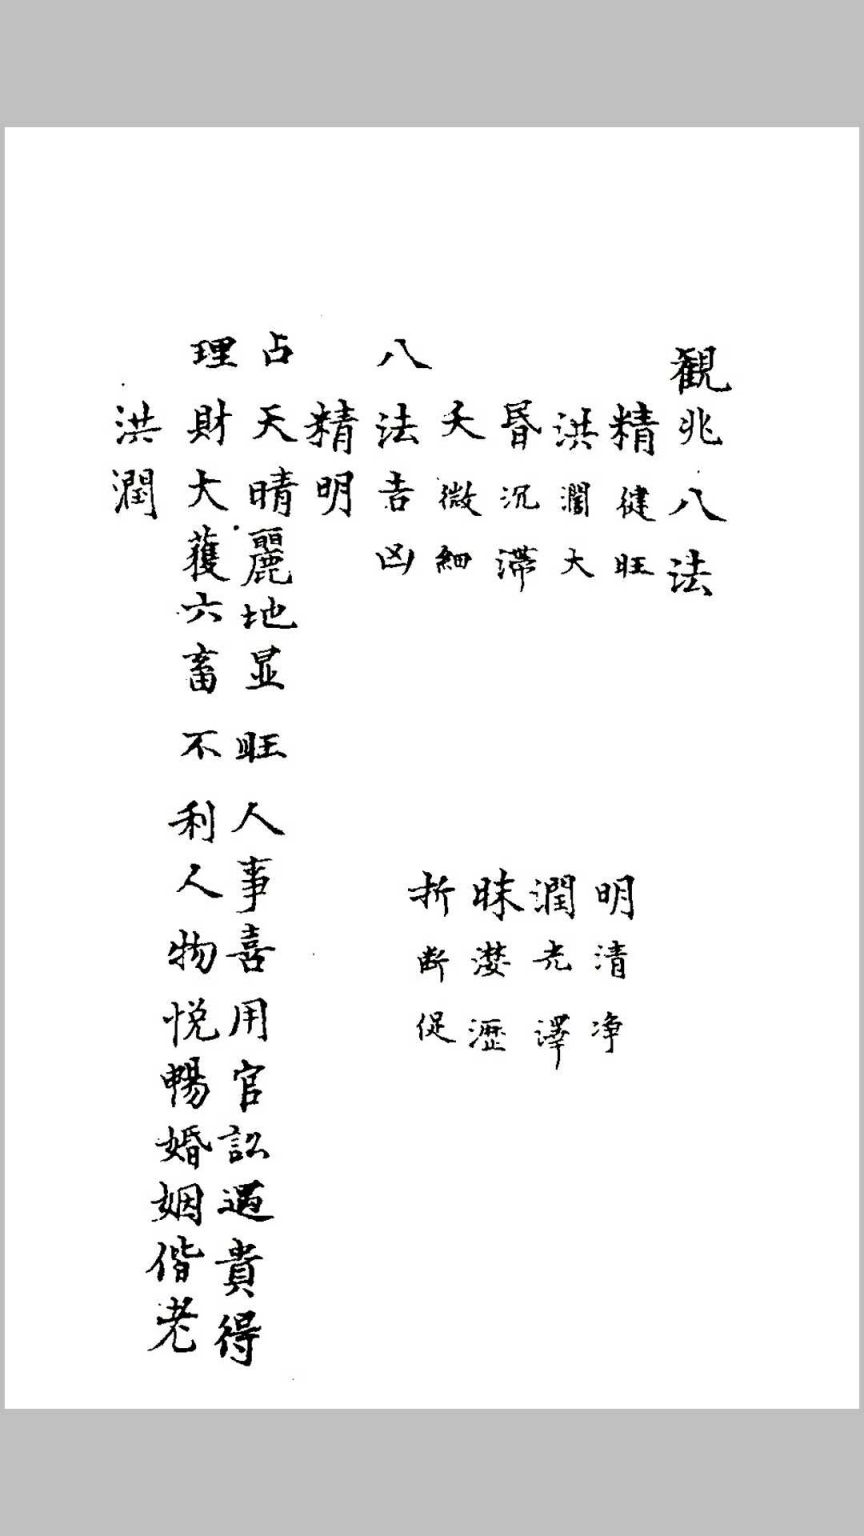 観兆八法
精健旺 明清净
洪濶大 潤光澤
昏沉滯 昧瀝
夭微細 折断促
八法吉凶
精明
占天晴麗地显旺人事喜用官訟遇貴得
理財大獲六畜不利人物悦暢婚姻偕老
洪潤